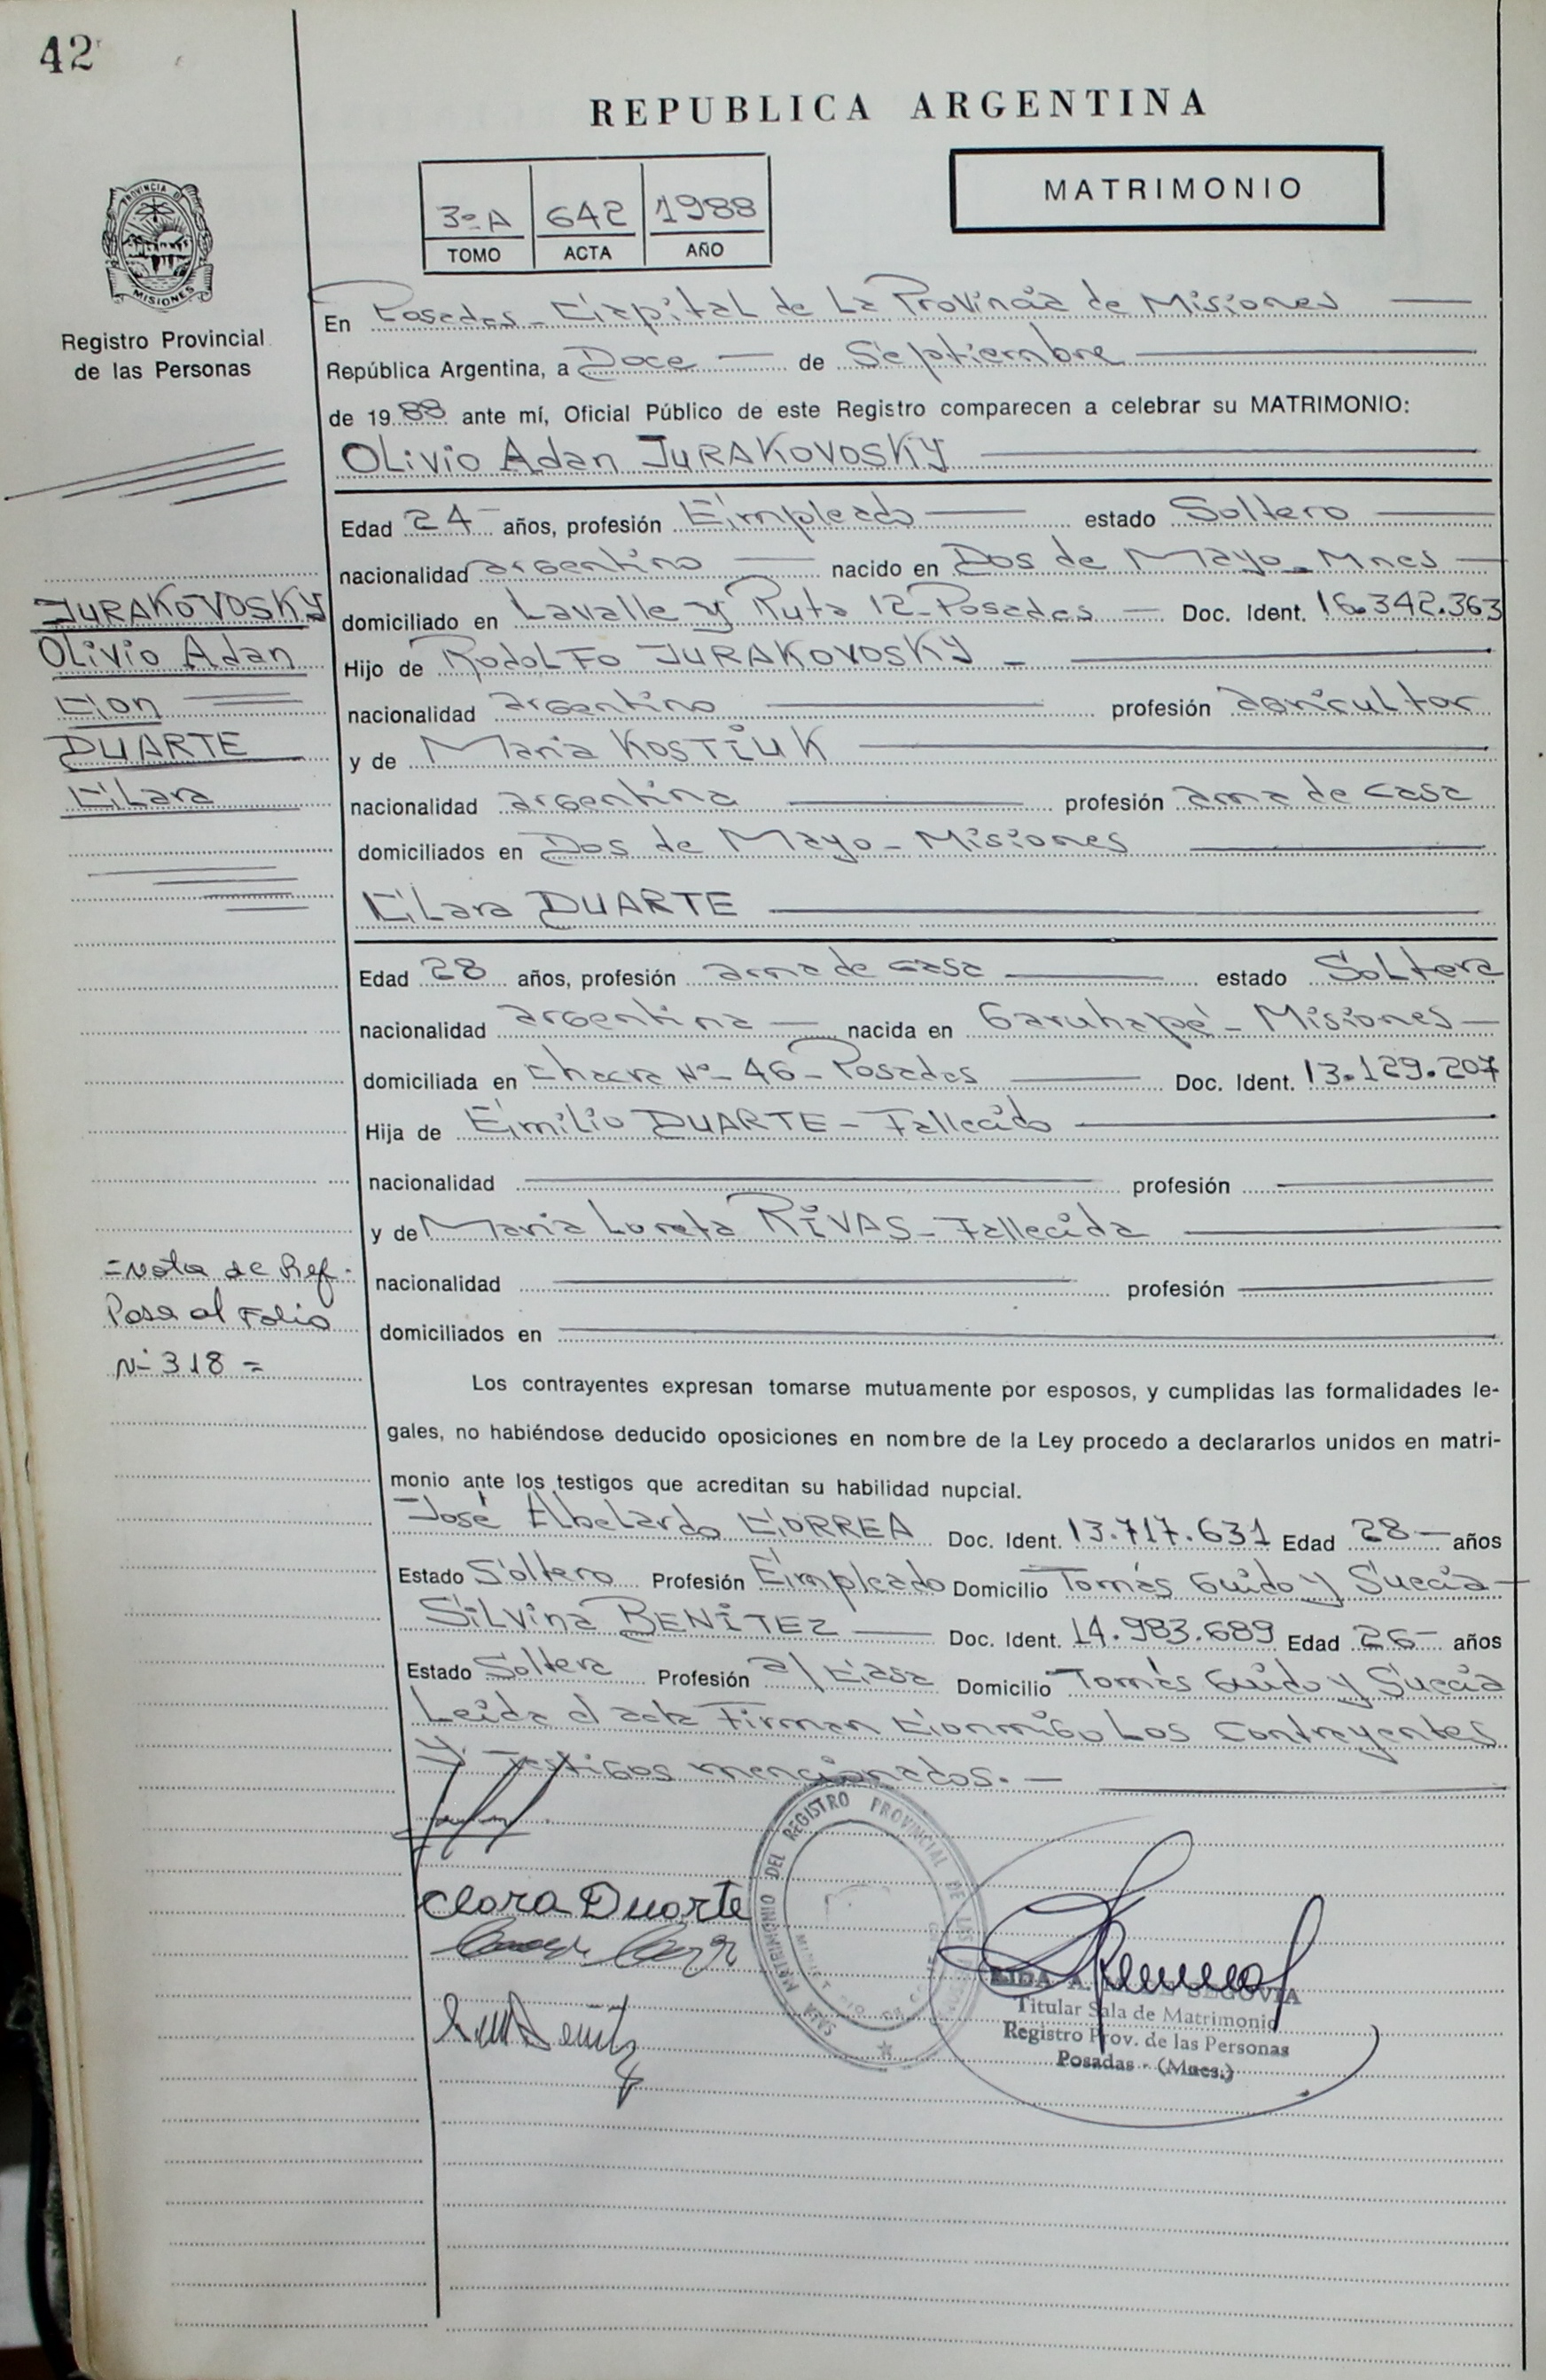 42
REPUBLICA ARGENTINA
MATRIMONIO
3º A 642 1988
TOMO ACTA AÑO
PROVINCIA DE
MISIONES
Registro Provincial
de las Personas
En Posadas - Capital de La Provincia de Misiones
República Argentina, a Doce de Septiembre
de 1988 ante mí, Oficial Público de este Registro comparecen a celebrar su MATRIMONIO:
Olivio Adan JURAKOVOSKY
Edad 24 años, profesión Empleado estado Soltero
nacionalidad argentino nacido en Dos de Mayo - Mnes
domiciliado en Lavalle y Ruta 12 - Posadas Doc. Ident. 16.342.363
Hijo de Rodolfo JURAKOVOSKY
nacionalidad argentino profesión agricultor
y de Maria KOSTIUK
nacionalidad argentina profesión ama de casa
domiciliados en Dos de Mayo - Misiones
Clara DUARTE
JURAKOVOSKY
Olivio Adan
Con
DUARTE
Clara
Edad 28 años, profesión ama de casa estado Soltera
nacionalidad argentina nacida en Garuhapé - Misiones
domiciliada en Chacra Nº 46 - Posadas Doc. Ident. 13.129.207
Hija de Emilio DUARTE - Fallecido
nacionalidad profesión
y de Maria Loreta RIVAS - Fallecida
nacionalidad profesión
domiciliados en
=Nota de Ref.
Pasa al Folio
Nº 318 =
Los contrayentes expresan tomarse mutuamente por esposos, y cumplidas las formalidades le-
gales, no habiéndose deducido oposiciones en nombre de la Ley procedo a declararlos unidos en matri-
monio ante los testigos que acreditan su habilidad nupcial.
José Abelardo CORREA Doc. Ident. 13.717.631 Edad 28 años
Estado Soltero Profesión Empleado Domicilio Tomás Guido y Suecia
Silvina BENITEZ Doc. Ident. 14.983.689 Edad 26 años
Estado Soltera Profesión a/ Casa Domicilio Tomás Guido y Suecia
Leida el acta Firman Conmigo Los Contrayentes
y Testigos mencionados.
SALA MATRIMONIO DEL REGISTRO PROVINCIAL DE LAS
Clara Duarte
SEGOVIA
Titular Sala de Matrimonio
Registro Prov. de las Personas
Posadas - (Mnes.)